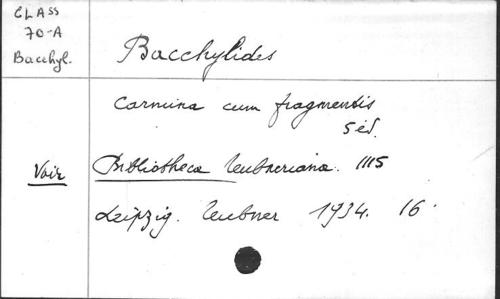 CLASS
70-A
Bacchyl.
Bacchylides
Carmina cum fragmentis
5 éd.
Voir
Bibliotheca Teubneriana. 1115
Leipzig. Teubner 1934. 16°